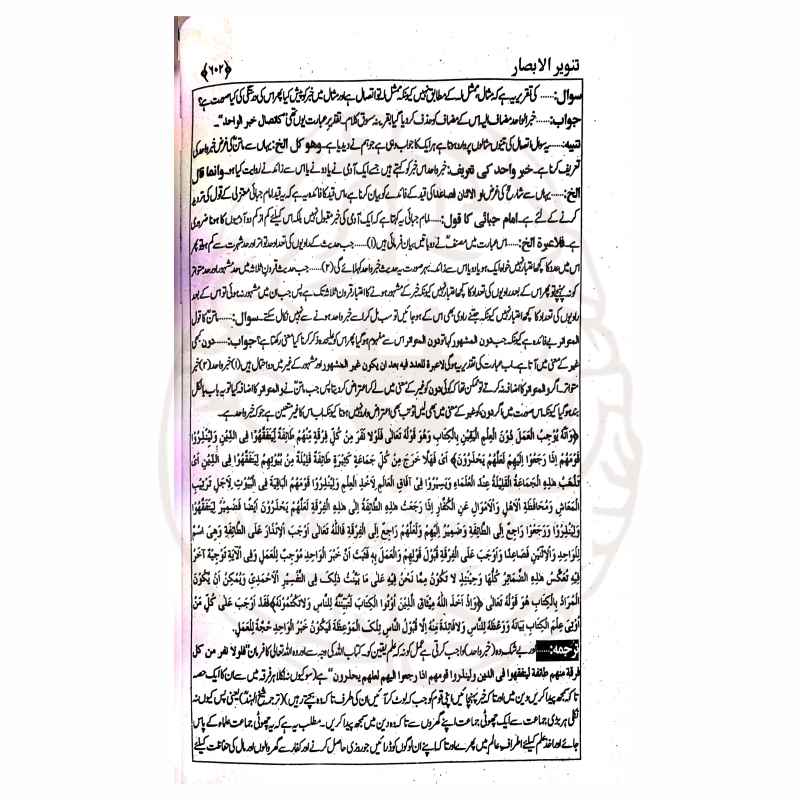 تنویر الابصار
﴿۲۰۲﴾
سوال:...... کی تقریر یہ ہے کہ مثال ممثل لہ کے مطابق نہیں کیونکہ ممثل لہ تو اتصال ہے اور مثال میں خبر کو پیش کیا پھر اس کی درستگی کی کیا صورت ہے؟
جواب:...... خبر الواحد مضاف الیہ اس کے مضاف کو حذف کر دیا گیا بقرینہ سوق کلام۔ تقدیر عبارت یوں تھی "کاتصال خبر الواحد"۔
تنبیہ:...... یہ سوال اتصال کی تینوں مثالوں پر وارد ہوتا ہے ہر ایک کا جواب وہی ہے جو ہم نے دیدیا ہے۔ وھو کل الخ: یہاں سے ماتنؒ کی غرض خبر واحد کی
تعریف کرنا ہے۔ خبر واحد کی تعریف: خبر واحد اس خبر کو کہتے ہیں جسے ایک آدمی نے یا دو نے یا اس سے زائد نے روایت کیا ہو۔ وانما قال
الخ:...... یہاں سے شارحؒ کی غرض او الاثنان فصاعدا کی قید کے فائدے کو بیان کرنا ہے، اس قید کا فائدہ یہ ہے کہ یہ قید امام جبائی معتزلی کے قول کی تردید
کرنے کے لئے ہے۔ امام جبائی کا قول:...... امام جبائی یہ کہتا ہے کہ ایک آدمی کی خبر مقبول نہیں بلکہ اس کیلئے کم از کم دو آدمیوں کا ہونا ضروری
ہے۔ فلاعبرة الخ:...... اس عبارت میں مصنفؒ نے دو باتیں بیان فرمائی ہیں (۱)...... جب حدیث کے راویوں کی تعداد حد تواتر اور حد شہرت سے کم ہو تو پھر
اس میں عدد کا کچھ اعتبار نہیں خواہ ایک ہو یا دو یا اس سے زائد، بہر صورت یہ حدیث خبر واحد کہلائے گی (۲)...... جب حدیث قرون ثلاثہ میں حد مشہور اور حد متواتر
کو نہ پہنچے تو پھر اس کے بعد راویوں کی تعداد کا کچھ اعتبار نہیں کیونکہ خبر کے مشہور ہونے کا اعتبار قرون ثلاثہ تک ہے پس جب ان میں مشہور نہ ہوئی تو اس کے بعد
راویوں کی تعداد کا کچھ اعتبار نہیں کیونکہ جتنے راوی بھی اس کے ہو جائیں تو سب مل کر اسے خبر واحد ہونے سے نہیں نکال سکتے۔ سوال:...... ماتن کا قول
المتواتر بے فائدہ ہے کیونکہ جب دون المشہور کہا تو دون المتواتر اس سے مفہوم ہو گیا پھر اس کو علیحدہ ذکر کرنا کیا معنی رکھتا ہے؟ جواب:...... دون بھی
غیر کے معنی میں آتا ہے۔ اب عبارت کی تقدیر یہ ہو گی لاعبرة للعدد فیہ بعد ان یکون غیر المشہور اور مشہور کے غیر میں دو احتمال ہیں (۱) خبر واحد (۲) خبر
متواتر۔ اگر والمتواتر کا اضافہ نہ کرتے تو ممکن تھا کہ کوئی دون کو غیر کے معنی میں لے کر اعتراض کر دیتا پس جب ماتنؒ نے والمتواتر کا اضافہ کیا تو یہ باب بالکل
بند ہو گیا کیونکہ اس صورت میں اگر دون کو غیر کے معنی میں بھی لیں تو تب بھی اعتراض وارد نہیں ہوتا کیونکہ اب اس کا غیر متعین ہے جو کہ خبر واحد ہے۔
﴿وَاَنَّهُ يُوْجِبُ الْعَمَلَ دُوْنَ الْعِلْمِ الْيَقِيْنِ بِالْكِتَابِ وَهُوَ قَوْلُهُ تَعَالٰى فَلَوْلَا نَفَرَ مِنْ كُلِّ فِرْقَةٍ مِّنْهُمْ طَائِفَةٌ لِّيَتَفَقَّهُوْا فِى الدِّيْنِ وَلِيُنْذِرُوْا
قَوْمَهُمْ اِذَا رَجَعُوْا اِلَيْهِمْ لَعَلَّهُمْ يَحْذَرُوْنَ﴾ اَىْ فَهَلَّا خَرَجَ مِنْ كُلِّ جَمَاعَةٍ كَثِيْرَةٍ طَائِفَةٌ قَلِيْلَةٌ مِنْ بُيُوْتِهِمْ لِيَتَفَقَّهُوْا فِى الدِّيْنِ اَىْ
تَذْهَبُ هٰذِهِ الْجَمَاعَةُ الْقَلِيْلَةُ عِنْدَ الْعُلَمَاءِ وَيَسِيْرُوْا فِىْ اٰفَاقِ الْعَالَمِ لِاَخْذِ الْعِلْمِ وَلِيُنْذِرُوْا قَوْمَهُمُ الْبَاقِيَةَ فِى الْبُيُوْتِ لِاَجْلِ تَرْتِيْبِ
الْمَعَاشِ وَمُحَافَظَةِ الْاَهْلِ وَالْاَمْوَالِ عَنِ الْكُفَّارِ اِذَا رَجَعَتْ هٰذِهِ الطَّائِفَةُ اِلٰى هٰذِهِ الْفِرْقَةِ لَعَلَّهُمْ يَحْذَرُوْنَ اَيْضًا فَضَمِيْرُ لِيَتَفَقَّهُوْا
وَلِيُنْذِرُوْا وَرَجَعُوْا رَاجِعٌ اِلَى الطَّائِفَةِ وَضَمِيْرُ اِلَيْهِمْ وَلَعَلَّهُمْ رَاجِعٌ اِلَى الْفِرْقَةِ فَاللّٰهُ تَعَالٰى اَوْجَبَ الْاِنْذَارَ عَلَى الطَّائِفَةِ وَهِىَ اسْمٌ
لِلْوَاحِدِ وَالْاِثْنَيْنِ فَصَاعِدًا وَاَوْجَبَ عَلَى الْفِرْقَةِ قُبُوْلَ قَوْلِهِمْ وَالْعَمَلَ بِهِ فَثَبَتَ اَنَّ خَبَرَ الْوَاحِدِ مُوْجِبٌ لِلْعَمَلِ وَفِى الْاٰيَةِ تَوْجِيْهٌ اٰخَرُ
فِيْهِ تُعْكَسُ هٰذِهِ الضَّمَائِرُ كُلُّهَا وَحِيْنَئِذٍ لَا تَكُوْنُ مِمَّا نَحْنُ فِيْهِ عَلٰى مَا بَيَّنْتُ ذٰلِكَ فِى التَّفْسِيْرِ الْاَحْمَدِىِّ وَيُمْكِنُ اَنْ يَّكُوْنَ
الْمُرَادُ بِالْكِتَابِ هُوَ قَوْلُهُ تَعَالٰى ﴿وَاِذْ اَخَذَ اللّٰهُ مِيْثَاقَ الَّذِيْنَ اُوْتُوا الْكِتَابَ لَتُبَيِّنُنَّهُ لِلنَّاسِ وَلَا تَكْتُمُوْنَهُ﴾ فَقَدْ اَوْجَبَ عَلٰى كُلِّ مَنْ
اُوْتِىَ عِلْمَ الْكِتَابِ بَيَانَهُ وَوَعْظَهُ لِلنَّاسِ وَلَا فَائِدَةَ مِنْهُ اِلَّا قُبُوْلُ النَّاسِ تِلْكَ الْمَوْعِظَةَ فَيَكُوْنُ خَبَرُ الْوَاحِدِ حُجَّةً لِلْعَمَلِ.
ترجمہ:...... اور بے شک وہ (خبر واحد) واجب کرتی ہے عمل کو نہ کہ علم یقین کو، کتاب اللہ کی وجہ سے اور وہ اللہ تعالیٰ کا فرمان "فلولا نفر من کل
فرقة منهم طائفة ليتفقهوا فی الدین ولینذروا قومهم اذا رجعوا الیهم لعلهم یحذرون" ہے (سو کیوں نہ نکلا ہر فرقہ میں سے ان کا ایک حصہ
تا کہ سمجھ پیدا کریں دین میں اور تا کہ خبر پہنچائیں اپنی قوم کو جب کہ لوٹ کر آئیں ان کی طرف تا کہ وہ بچتے رہیں) (ترجمہ شیخ الہندؒ) یعنی پس کیوں نہ
نکلی ہر بڑی جماعت سے ایک چھوٹی جماعت اپنے گھروں سے تا کہ وہ دین میں سمجھ پیدا کریں۔ مطلب یہ ہے کہ یہ چھوٹی جماعت علماء کے پاس
جائے اور اخذ علم کیلئے اطراف عالم میں پھرے اور تا کہ اپنے ان لوگوں کو ڈرائیں جو روزی حاصل کرنے اور کفار سے گھر والوں اور مال کی حفاظت کیلئے